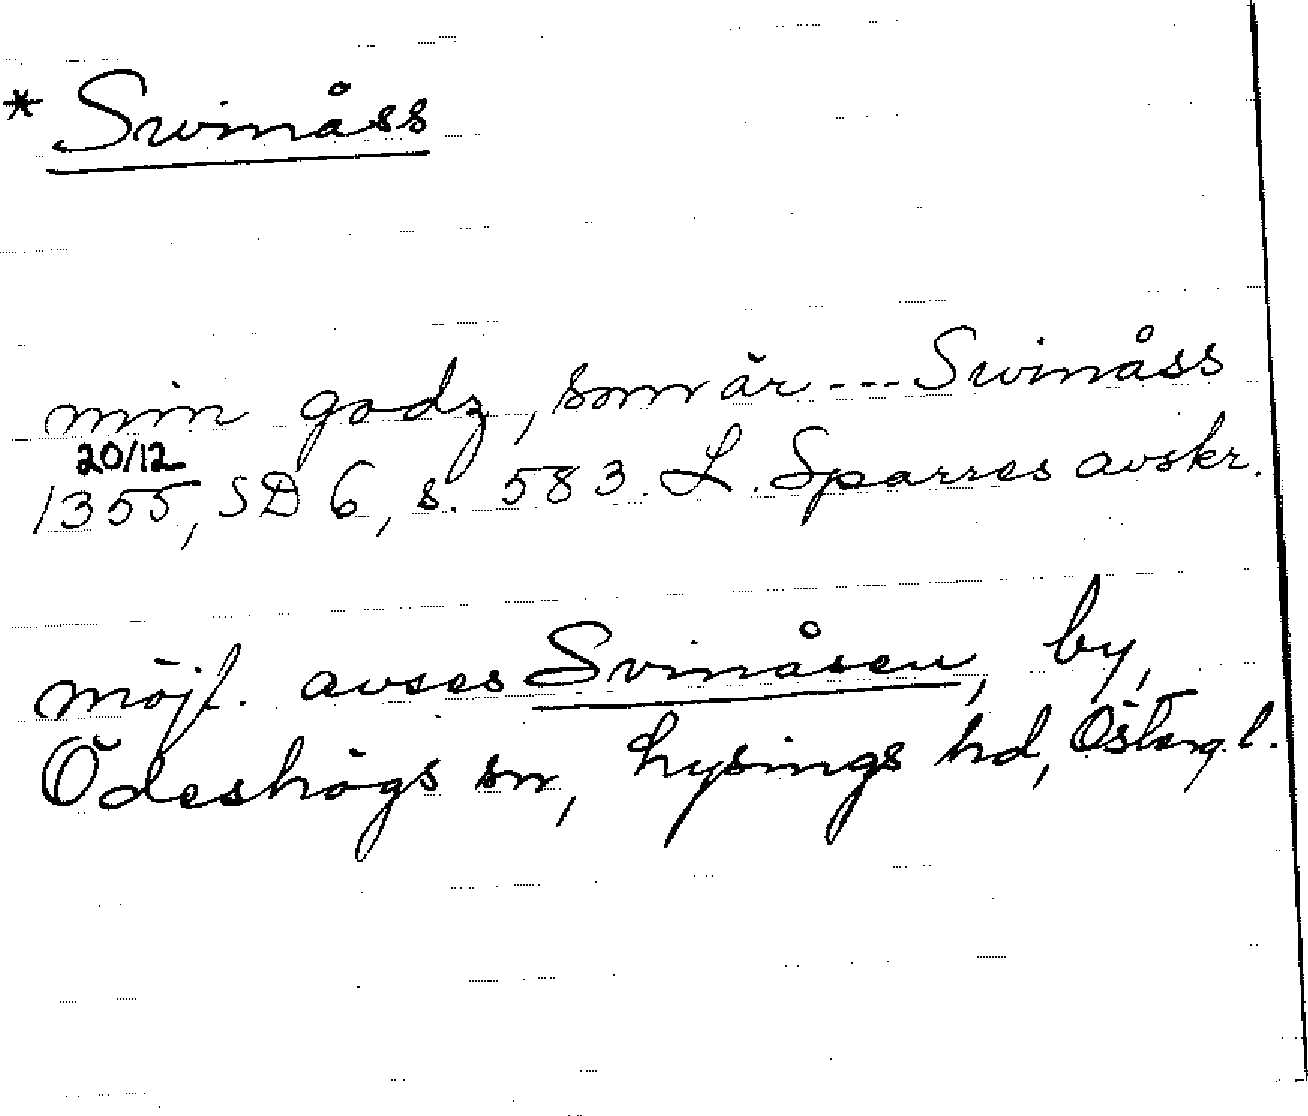 * Swinåss
min godz, som är --- Swinåss
20/12
1355, SD 6, s. 583. L. Sparres avskr.
möjl. avses Svinåsen, by,
Ödeshögs sn, Lysings hd, Österg. l.